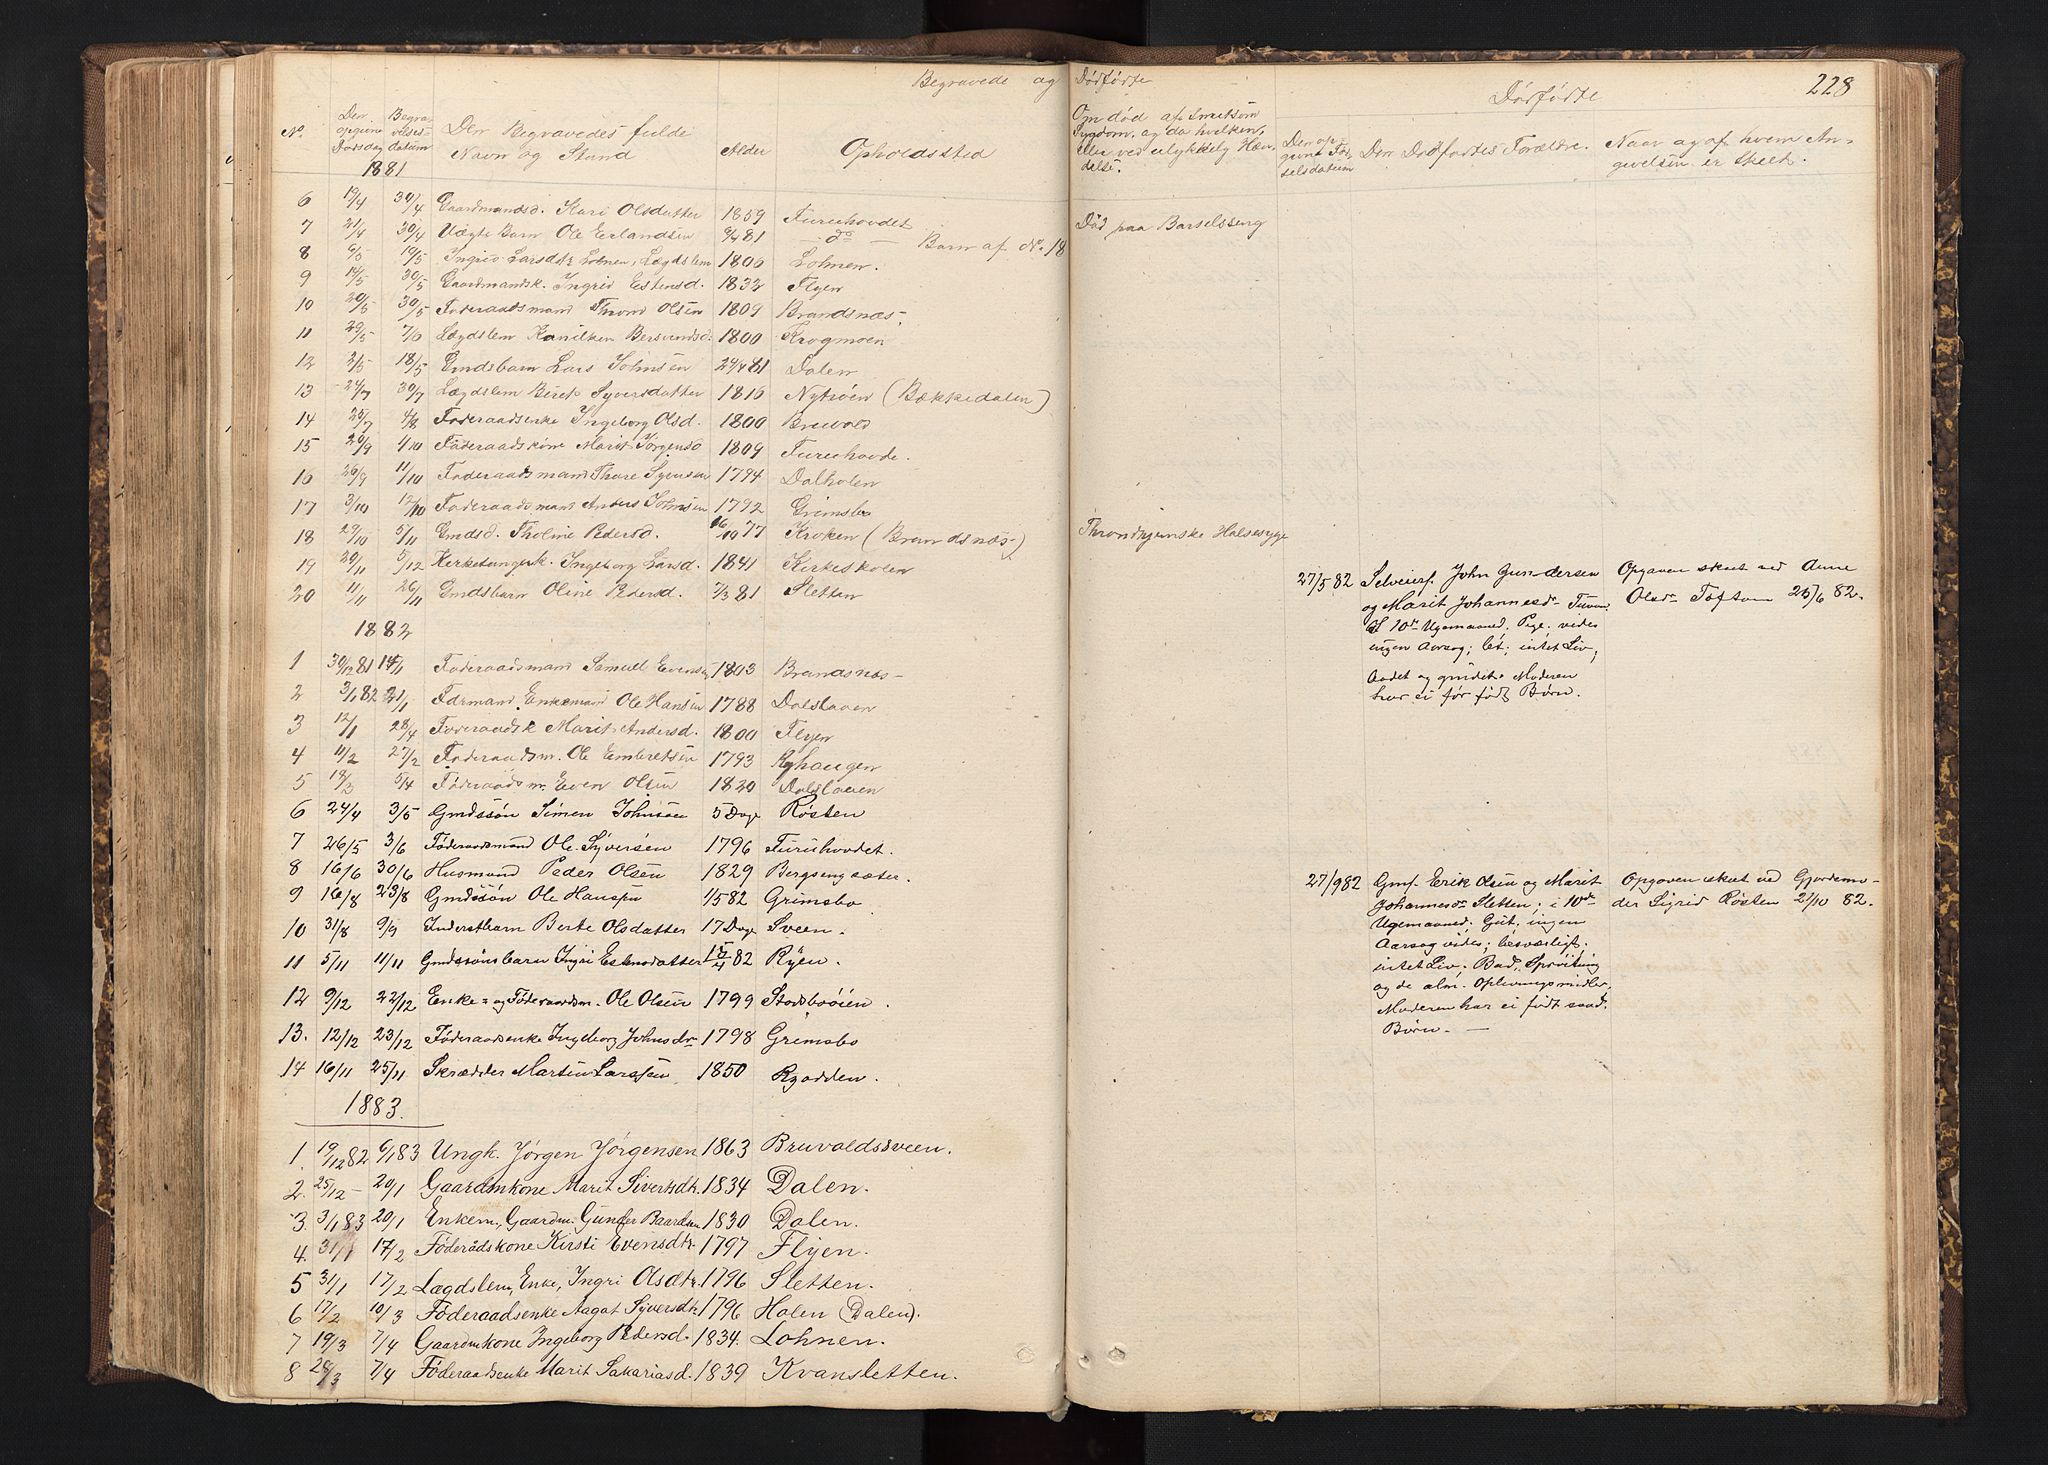 Begravede og Dødfødte
Dødfødte
228
No.
Den opgivne Dødsdag
Begravelsesdatum
Den Begravedes fulde Navn og Stand
Alder
Opholdssted
Om død af Smitsom Sygdom, og da hvilken, eller ved ulykkelig Hændelse.
Den opgivne Fødselsdatum
Den Dødfødtes Forældre.
Naar og af hvem Angivelsen er skeet.
1881
6 19/4 30/4 Gaardmandsd. Kari Olsdatter 1859 Furuhovdet Død paa Barselseng
7 21/4 30/4 Uægte Barn Ole Erlandsen 9/4 81 do Barn af No. 18
8 6/5 19/5 Ingrid Larsdtr Lohnen, Lægdslem 1806 Lohnen.
9 14/5 30/5 Gaardmandsk. Ingrid Estensd. 1832 Flyen
10 20/5 30/5 Føderaadsmand Thrond Olsen 1809 Brandsnæs.
11 29/5 7/6 Lægdslem Karniken Bersvendsd. 1800 Krogmoen
12 2/5 18/5 Gmdsbarn Lars Johnsen 24/4 81 Dalen
13 24/7 30/7 Lægdslem Beret Syversdatter 1816 Nytrøen (Bækkedalen)
14 25/7 4/8 Føderaadsenke Ingeborg Olsd. 1800 Bruvold
15 20/9 1/10 Føderaadskone Marit Jørgensd 1809 Furuhovde.
16 26/9 11/10 Føderaadsmand Thore Syversen 1794 Dalholen
17 3/10 12/10 Føderaadsmand Anders Johnsen 1792 Grimsbo
18 29/10 5/11 Gmdsd. Tholine Pedersd. 77 Kroken (Brandsnæs) Throndhjemske Halsesyge
19 20/11 5/12 Kerketungenk. Ingeborg Larsd. 1841 Kirkeskolen
20 11/11 26/11 Gmdsbarn Oline Pedersd. 7/3 81 Sletten
27/5 82 Selveierf. John Gundersen
og Marit Johannesd.
I 10de Ugemaaned. Pige. vides
ingen Aarsag; let; intet Liv;
Aadet og gnidet. Moderen
har ei før født Børn.
Opgaven skeet ved Anne
Olsdr Toftom 25/6 82.
1882
1 30/12 81 15/1 Føderaadsmand Samuel Evensen 1803 Brandsnæs
2 3/1 82 21/1 Fdrmand, Enkemand Ole Hansen 1788 Dalslaaen
3 12/1 28/4 Føderaadsk Marit Andersd. 1800 Flyen
4 11/2 27/2 Føderaadsm. Ole Embretsen 1793 Ryhaugen
5 18/3 5/4 Føderaadsm. Even Olsen 1820 Dalslaaen
6 24/4 3/5 Gmdssøn Simen Johnsen 5 Dage Røsten
7 26/5 3/6 Føderaadsmand Ole Syversen 1796 Furuhovdet.
8 16/6 30/6 Husmand Peder Olsen 1829 Bergsengsæter.
9 16/8 23/8 Gmdssøn Ole Hansen 1/5 82 Grimsbo
10 31/8 9/9 Inderstbarn Berte Olsdatter 17 Dage Sveen.
11 5/11 11/11 Gmdssønsbarn Ingri Estensdatter 15/4 82 Ryen.
12 9/12 22/12 Enke- og Føderaadsm. Ole Olsen 1799 Stadsbuøien.
13. 12/12 23/12 Føderaadsenke Ingeborg Johnsdr 1798 Grimsbo
14 16/11 25/11 Skrædder Martin Larssen 1850 Ryodden.
27/9 82 Gmf. Erik Olsen og Marit
Johannesd. Sletten; i 10de
Ugemaaned. Gut; ingen
Aarsag vides; besværligt;
intet Liv. Bad, Sprøitning
og de alm. Oplivningsmidler.
Moderen har ei født saad.
Børn. —
Opgaven skeet ved Gjordemo-
der Sigrid Røsten 21/10 82.
1883.
1. 19/12 82 6/1 83 Ungk. Jørgen Jørgensen 1863 Bruvoldssveen.
2. 25/12 – 20/1 Gaardmkone Marit Siversdtr. 1834 Dalen.
3 3/1 83 20/1 Enkem., Gaardm. Gunder Baardsen 1830 Dalen.
4. 31/1 17/2 Føderådskone Kirsti Evensdtr. 1797 Flyen.
5 31/1 17/2 Lægdslem, Enke, Ingri Olsdtr. 1796 Sletten.
6 17/2 10/3 Føderaadsenke Aagot Syversdtr. 1796 Holen (Dalen).
7 19/3 7/4 Gaardmkone Ingeborg Pedersd. 1834. Lohnen.
8 28/3 7/4 Føderaadsenke Marit Sakariasd. 1839 Kvansletten.